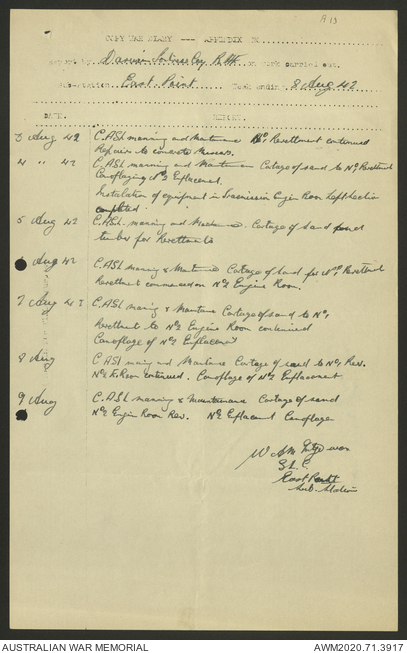 A 13
COPY WAR DIARY --- APPENDIX
Report by Darwin Battn work carried out.
Sub-station. East Point Week ending 8 Aug 42
DATE. REPORT.
3 Aug 42 C.ASL manning and Revettment continued
Repairs to concrete
4 " 42 C.ASL manning and Cartage of sand to Nº1 Revettment
Camoflaging of Nº2 Emplacement.
Installation of equipment in Transmission Engine Room Left Section
completed.
5 Aug 42 C.ASL. manning and Cartage of sand and
timber for Revettments
6 Aug 42 C.ASL maning & Cartage of sand for Nº1 Revettment
Revettment commenced on Nº2 Engine Room.
7 Aug 42 C.ASL maning & Cartage of sand to Nº1
Revettment to Nº2 Engine Room continued
Camoflage of Nº2 Emplacement
8 Aug C ASL maning and Cartage of sand to Nº1 Rev.
Nº2 E Room continued. Camoflage of Nº2 Emplacement
9 Aug C.ASL manning & Maintainance Cartage of sand
Nº2 Engin Room Rev. Nº2 Emplacement Camoflage
W
East Point
Sub-Station
AUSTRALIAN WAR MEMORIAL AWM2020.71.3917